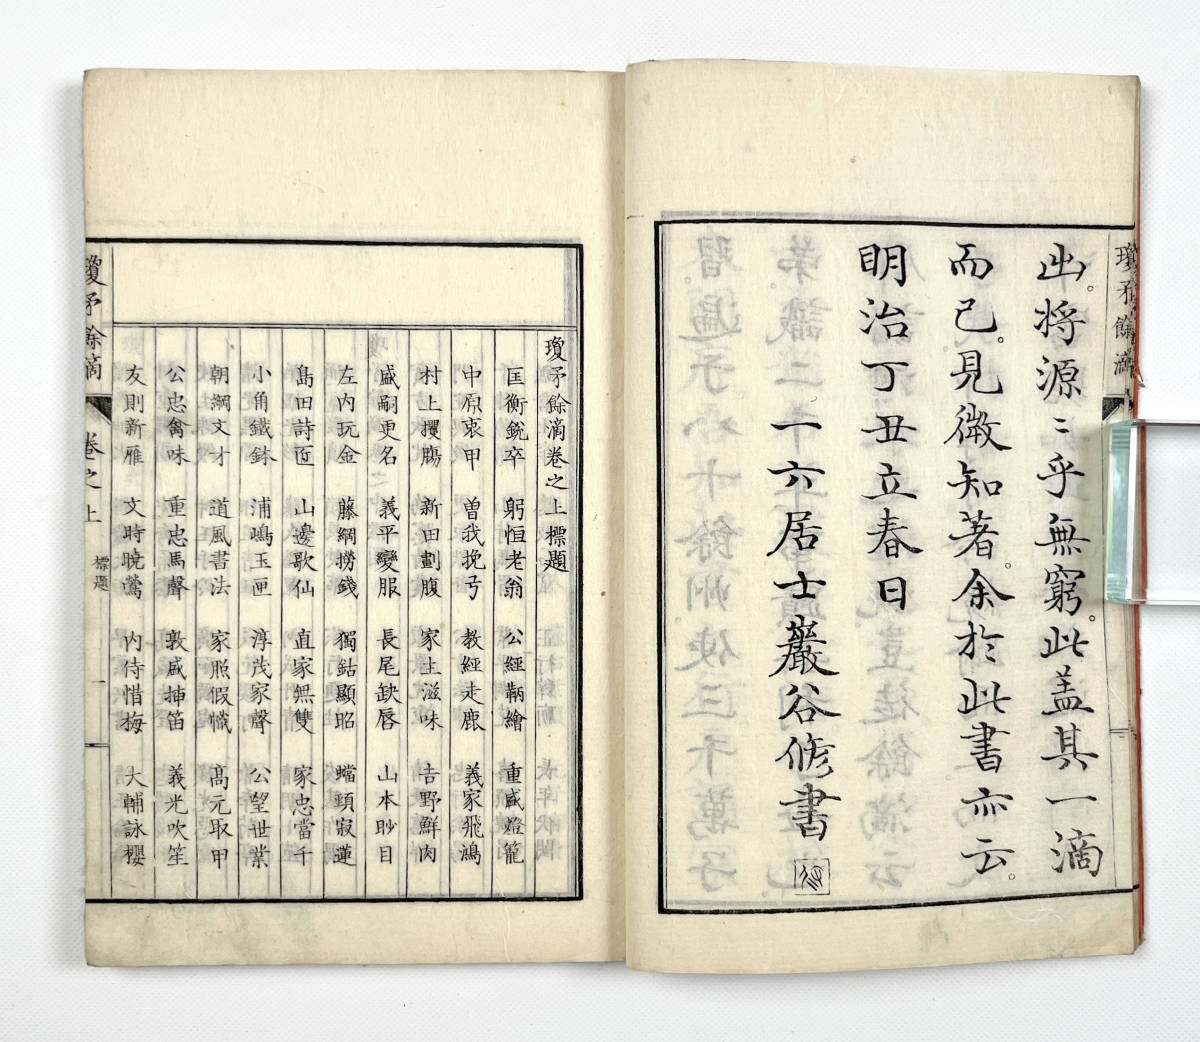 瓊矛餘滴
出。将源〻乎無窮。此盖其一滴
而已。見微知著。余於此書亦云。
明治丁丑立春日
一六居士巖谷修書
瓊矛餘滴卷之上標題
匡衡銳卒 躬恒老翁 公經鞆繪 重盛燈籠
中原衷甲 曽我挽弓 教經走鹿 義家飛鴻
村上攫腸 新田劃腹 家土滋味 吉野鮮肉
盛嗣更名 義平變服 長尾缺唇 山本眇目
左內玩金 藤綱撈錢 獨鈷顯昭 蟷頸寂蓮
島田詩匠 山邊歌仙 直家無雙 家忠當千
小角鐵鉢 浦嶋玉匣 淳茂家聲 公望世業
朝綱文才 道風書法 家照假幟 高元取甲
公忠禽味 重忠馬聲 敦盛揷笛 義光吹笙
友則新雁 文時曉鶯 內侍惜梅 大輔詠櫻
瓊矛餘滴 卷之上 標題 一